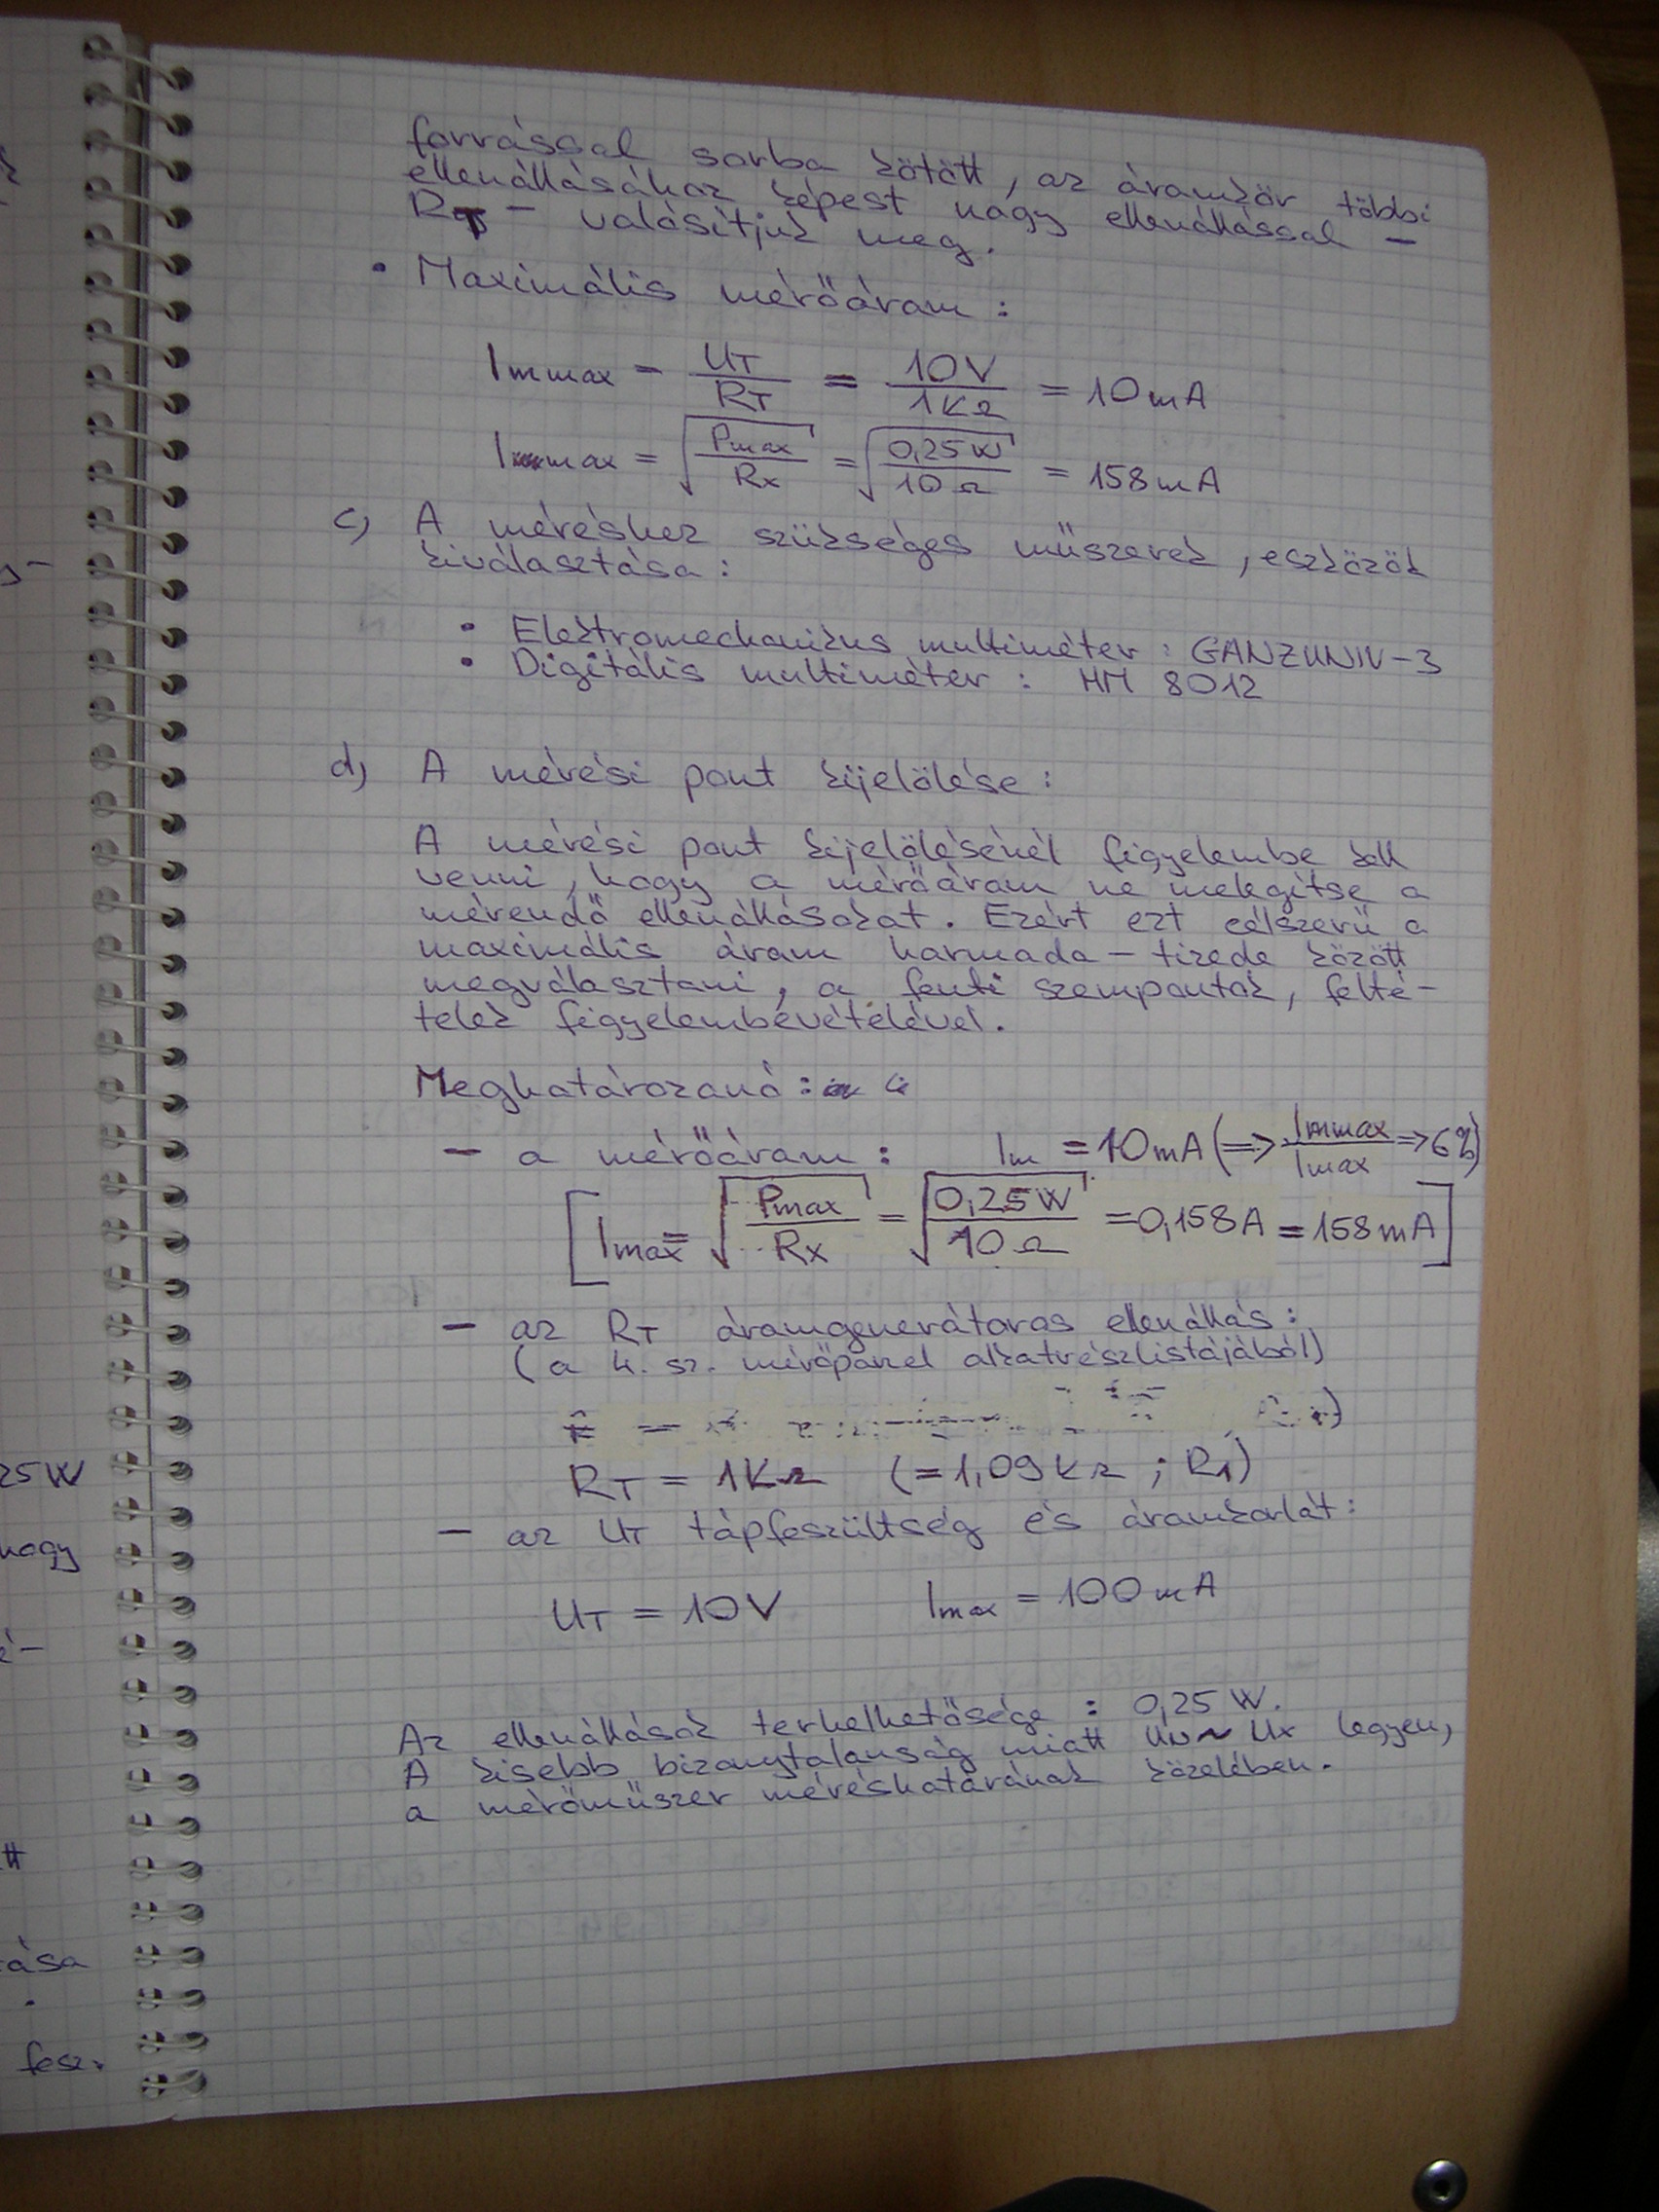 forrással sorba kötött, az áramkör többi
ellenállásához képest nagy ellenállással –
RT – valósítjuk meg.
• Maximális mérőáram :
Immax = UT / RT = 10V / 1KΩ = 10mA
Immax = √(Pmax / Rx) = √(0,25W / 10Ω) = 158mA
c) A méréshez szükséges műszerek, eszközök
kiválasztása :
• Elektromechanikus multiméter : GANZUNIV-3
• Digitális multiméter : HM 8012
d) A mérési pont kijelölése :
A mérési pont kijelölésénél figyelembe kell
venni, hogy a mérőáram ne melegítse a
mérendő ellenállásokat. Ezért ezt célszerű a
maximális áram harmada – tizede között
megválasztani, a fenti szempontok, felté-
telek figyelembevételével.
Meghatározandó :
– a mérőáram : Im = 10mA (=> Immax / Imax => 6%)
[Imax = √(Pmax / Rx) = √(0,25W / 10Ω) = 0,158A = 158mA]
– az RT áramgenerátoros ellenállás :
(a 4. sz. mérőpanel alkatrészlistájából)
RT = 1KΩ (=1,09KΩ ; R1)
– az UT tápfeszültség és áramkorlát :
UT = 10V Imax = 100mA
Az ellenállások terhelhetősége : 0,25 W.
A kisebb bizonytalanság miatt UN ~ Ux legyen,
a mérőműszer méréshatárának közelében.
25W
hogy
ása
fesz.